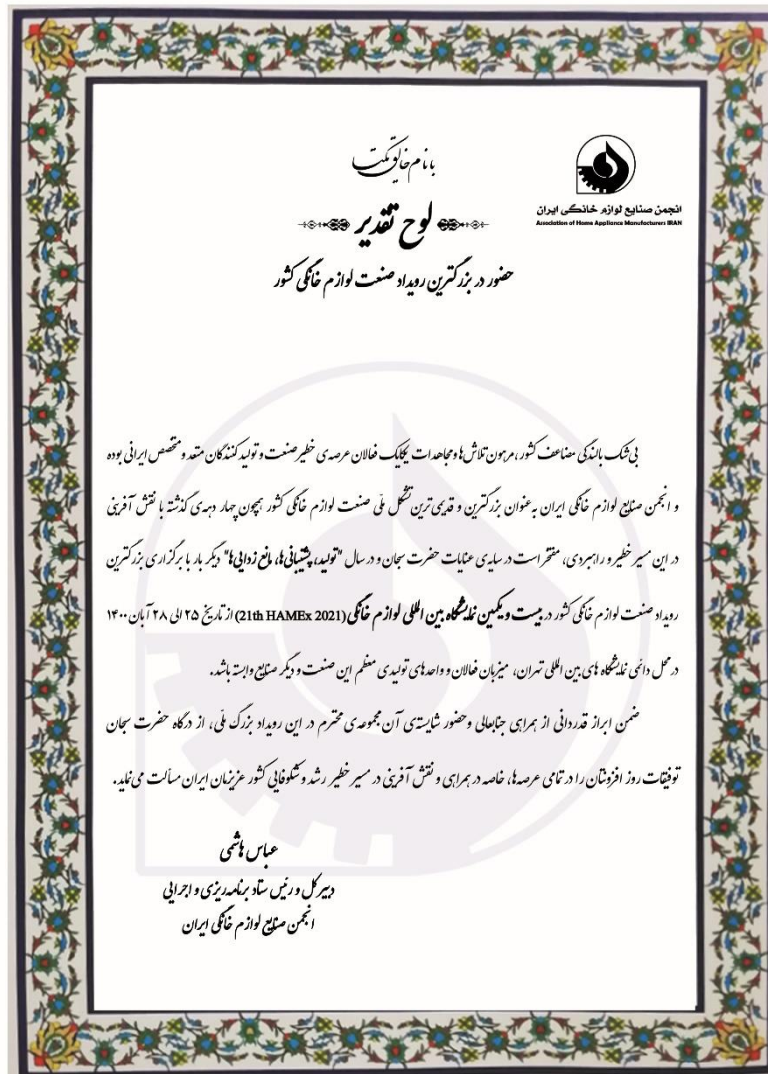 با نام خالق یکتا
انجمن صنایع لوازم خانگی ایران
Association of Home Appliance Manufacturers IRAN
لوح تقدیر
حضور در بزرگترین رویداد صنعت لوازم خانگی کشور
بی‌شک بالندگی مضاعف کشور، مرهون تلاش‌ها و مجاهدات یکایک فعالان عرصه‌ی خطیر صنعت و تولیدکنندگان متعهد و متخصص ایرانی بوده
و انجمن صنایع لوازم خانگی ایران به عنوان بزرگترین و قدیمی‌ترین تشکل ملّی صنعت لوازم خانگی کشور همچون چهار دهه‌ی گذشته با نقش آفرینی
در این مسیر خطیر و راهبردی، مفتخر است در سایه‌ی عنایات حضرت سبحان و در سال "تولید، پشتیبانی‌ها، مانع زدایی‌ها" دیگر بار با برگزاری بزرگترین
رویداد صنعت لوازم خانگی کشور در بیست و یکمین نمایشگاه بین المللی لوازم خانگی (21th HAMEx 2021) از تاریخ ۲۵ الی ۲۸ آبان ۱۴۰۰
در محل دائمی نمایشگاه های بین المللی تهران، میزبان فعالان و واحدهای تولیدی معظم این صنعت و دیگر صنایع وابسته باشد.
ضمن ابراز قدردانی از همراهی جنابعالی و حضور شایسته‌ی آن مجموعه‌ی محترم در این رویداد بزرگ ملّی، از درگاه حضرت سبحان
توفیقات روز افزونتان را در تمامی عرصه‌ها، خاصه در همراهی و نقش آفرینی در مسیر خطیر رشد و شکوفایی کشور عزیزمان ایران مسألت می‌نماید.
عباس هاشمی
دبیر کل و رئیس ستاد برنامه‌ریزی و اجرایی
انجمن صنایع لوازم خانگی ایران